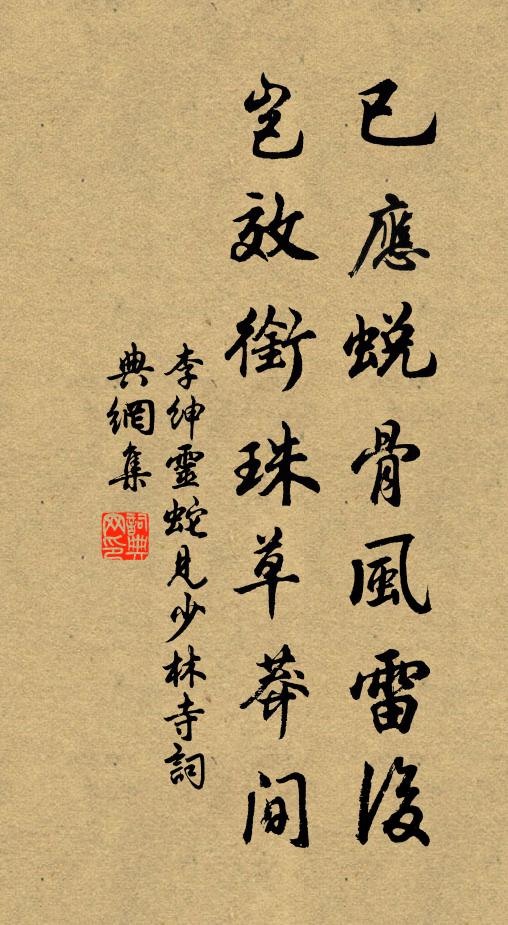 已應蛻骨風雷後
豈效銜珠草莽間
李紳靈蛇見少林寺詞
典網集
詞典
網印